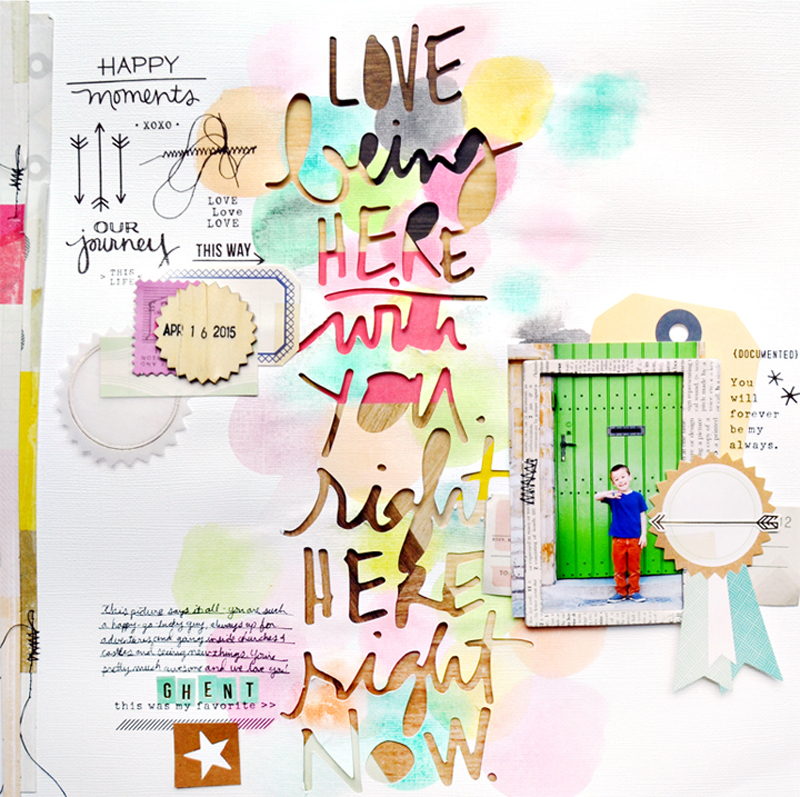 HAPPY
moments
• XOXO •
LOVE
Love
LOVE
OUR
journey
THIS WAY
> THIS
LIFE
APR 16 2015
LOVE
being
HERE
with
you.
right
HERE
right
NOW.
{DOCUMENTED}
You
will
forever
be my
always.
12
TO
This picture says it all - you are such
a happy-go-lucky guy, always up for
adventures and going inside churches &
castles and seeing new things. You're
pretty much awesome and we love you!
GHENT
this was my favorite >>